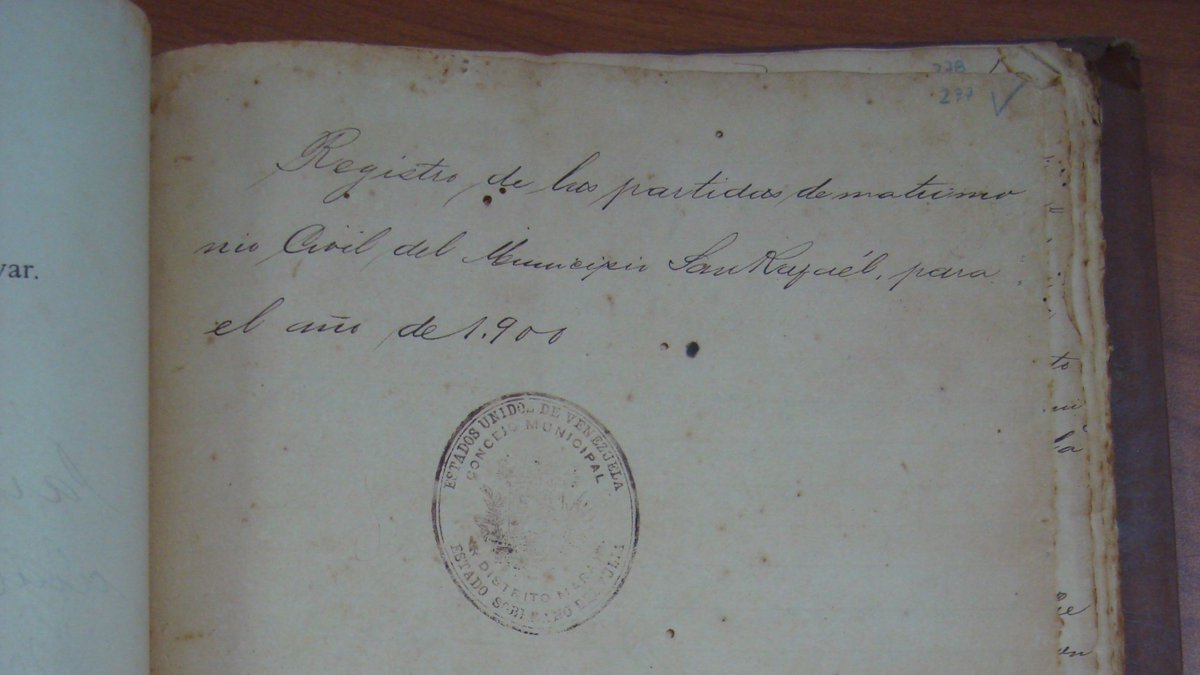 var.
278
297
Registro de las partidas de matrimo
nio Civil del Municipio San Rafaél, para
el año de 1.900
ESTADOS UNIDOS DE VENEZUELA
CONCEJO MUNICIPAL
DISTRITO MARA
ESTADO SOBERANO DEL ZULIA
to